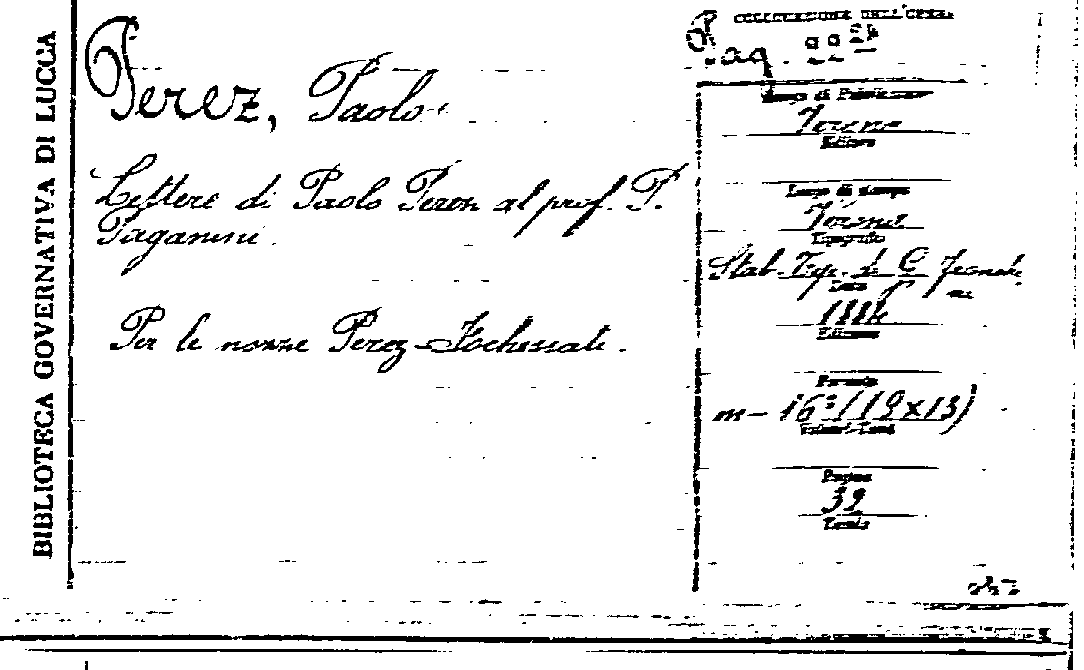 BIBLIOTECA GOVERNATIVA DI LUCCA
Perez, Paolo
Lettere di Paolo Perez al prof. P.
Paganini.
Per le nozze Perez-Fochessati.
COLLOCAZIONE DELL'OPERA
Pag.
Luogo di Pubblicazione
Verona
Editore
Luogo di stampa
Verona
Tipografia
Stab. Tip. di G.
Data
Edizione
Formato
m- 16º/(19x13)
Volumi-Tomi
Pagine
32
Tavole